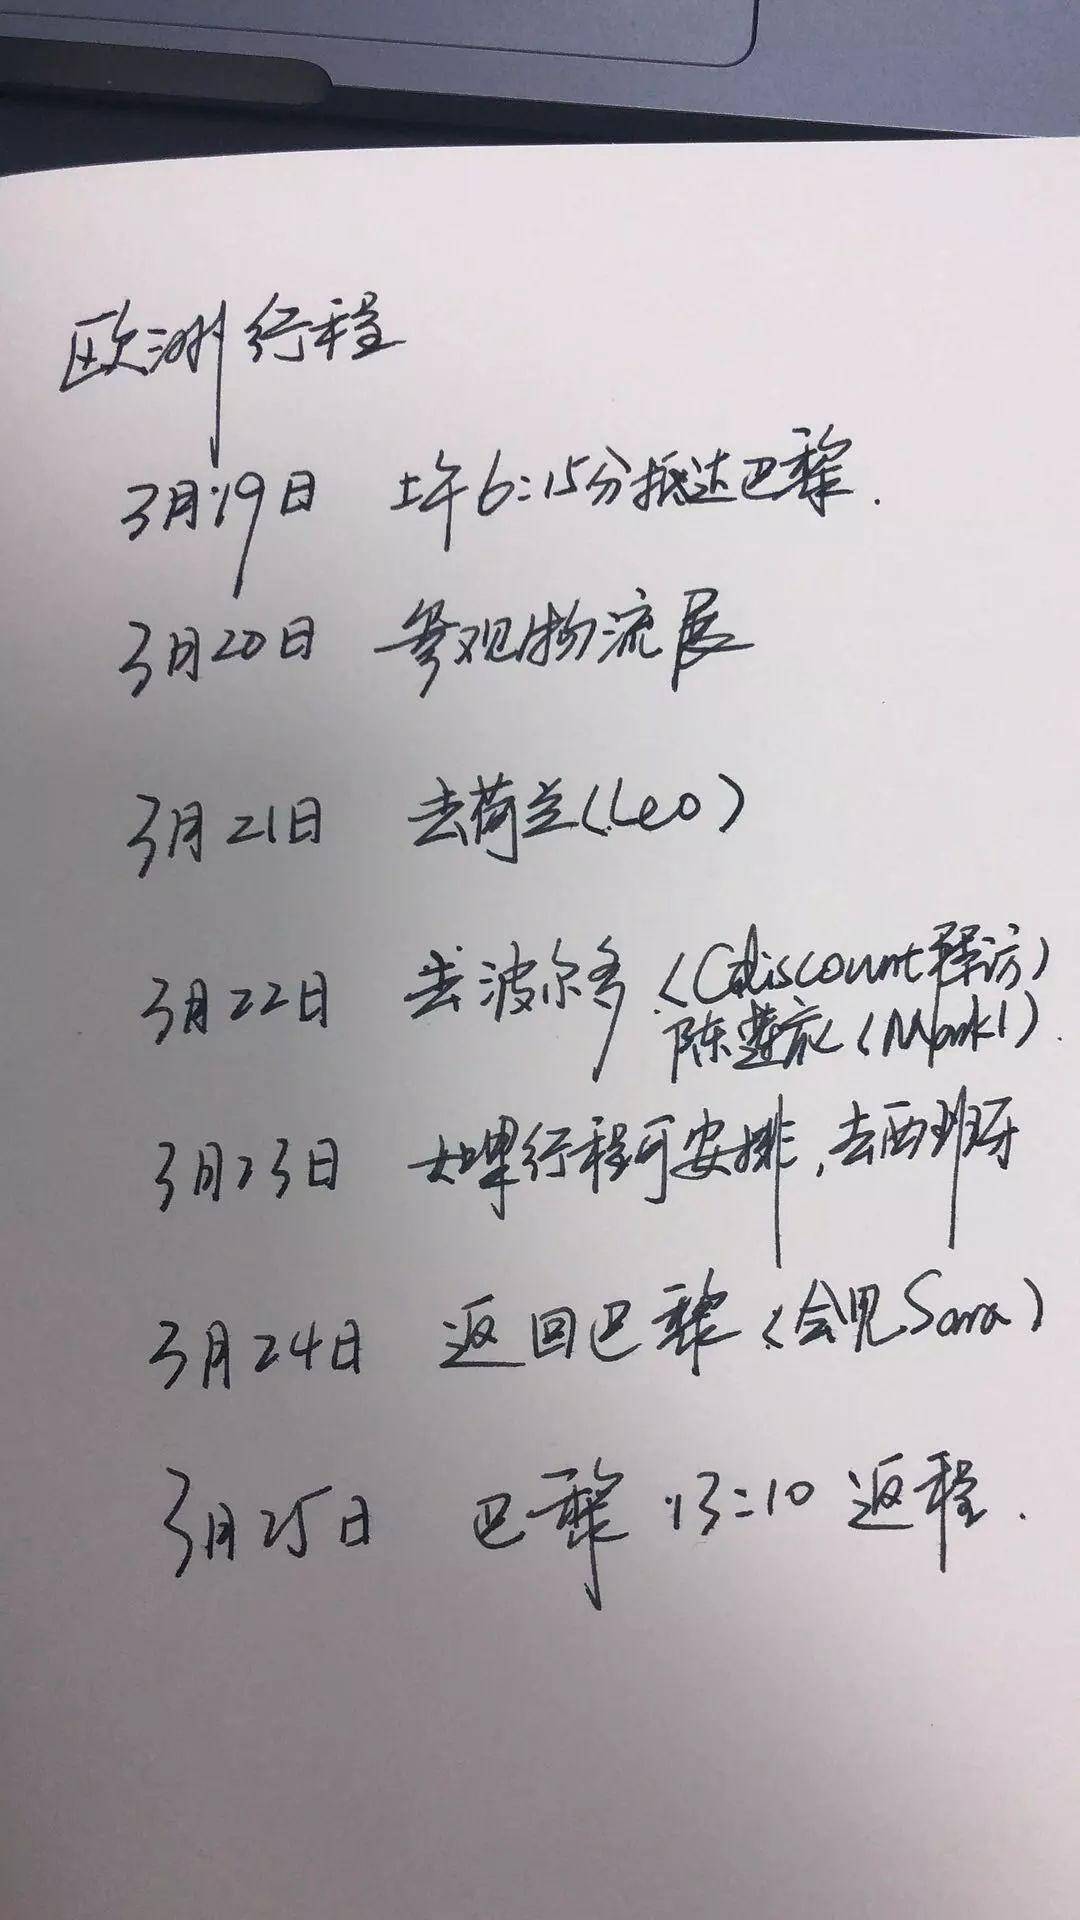 欧洲行程
3月19日 上午6:15分抵达巴黎.
3月20日 参观物流展
3月21日 去荷兰(Leo)
3月22日 去波尔多(Cdiscount拜访)
陈莲家(Mankl).
3月23日 如果行程可安排,去西班牙
3月24日 返回巴黎(会见Sara)
3月25日 巴黎 13:10 返程.